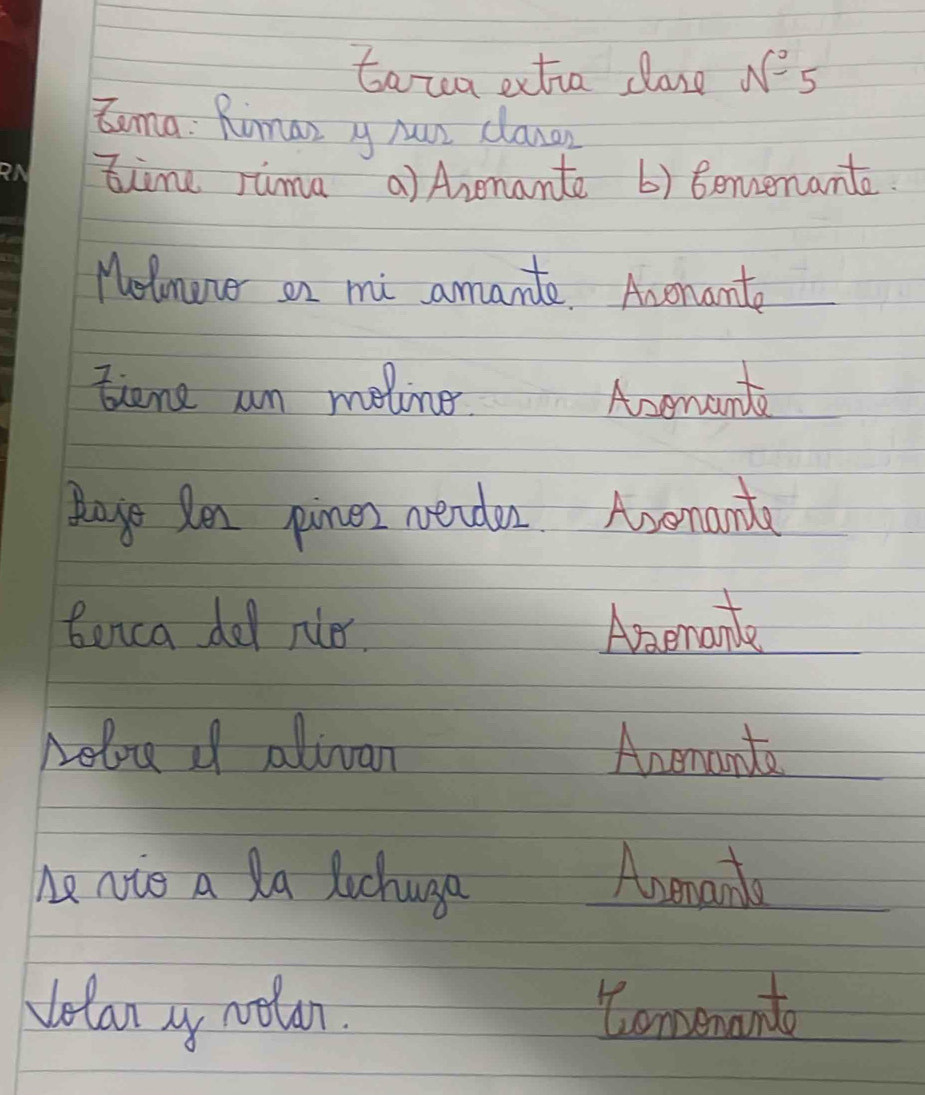 Tarea extra clase Nº 5
Tema: Rimas y sus clases
Tiene rima a) Asonante b) Consonante.
Molinero es mi amante. Asonante
Tiene un molino. Asonante
Bajo los pinos verdes. Asonante
Cerca del río. Asonante
Sobre el olivar Asonante
se vio a la lechuza Asonante
Volar y volar. Consonante
RN